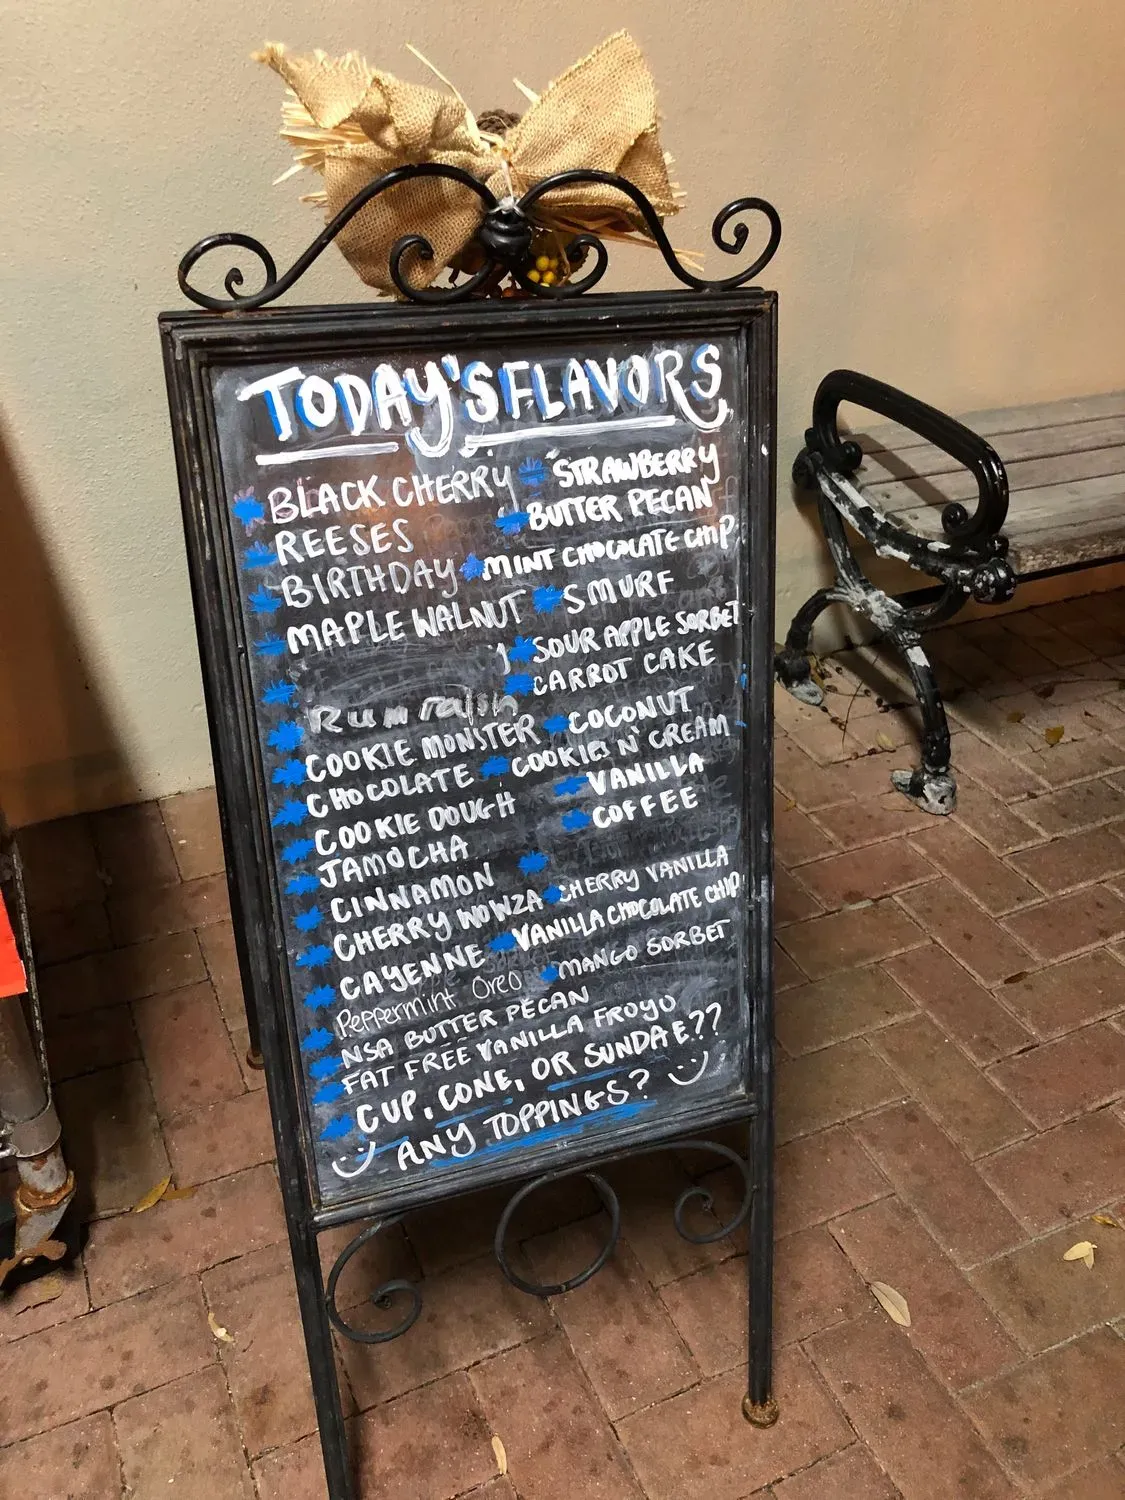 TODAY'S FLAVORS
BLACK CHERRY
REESES
BIRTHDAY
MAPLE WALNUT
Rum raisin
COOKIE MONSTER
CHOCOLATE
COOKIE DOUGH
JAMOCHA
CINNAMON
CHERRY WOWZA
CAYENNE
Peppermint Oreo
NSA BUTTER PECAN
FAT FREE VANILLA FROYO
STRAWBERRY
BUTTER PECAN
MINT CHOCOLATE CHIP
SMURF
SOUR APPLE SORBET
CARROT CAKE
COCONUT
COOKIES N' CREAM
VANILLA
COFFEE
CHERRY VANILLA
VANILLA CHOCOLATE CHIP
MANGO SORBET
CUP, CONE, OR SUNDAE??
ANY TOPPINGS?